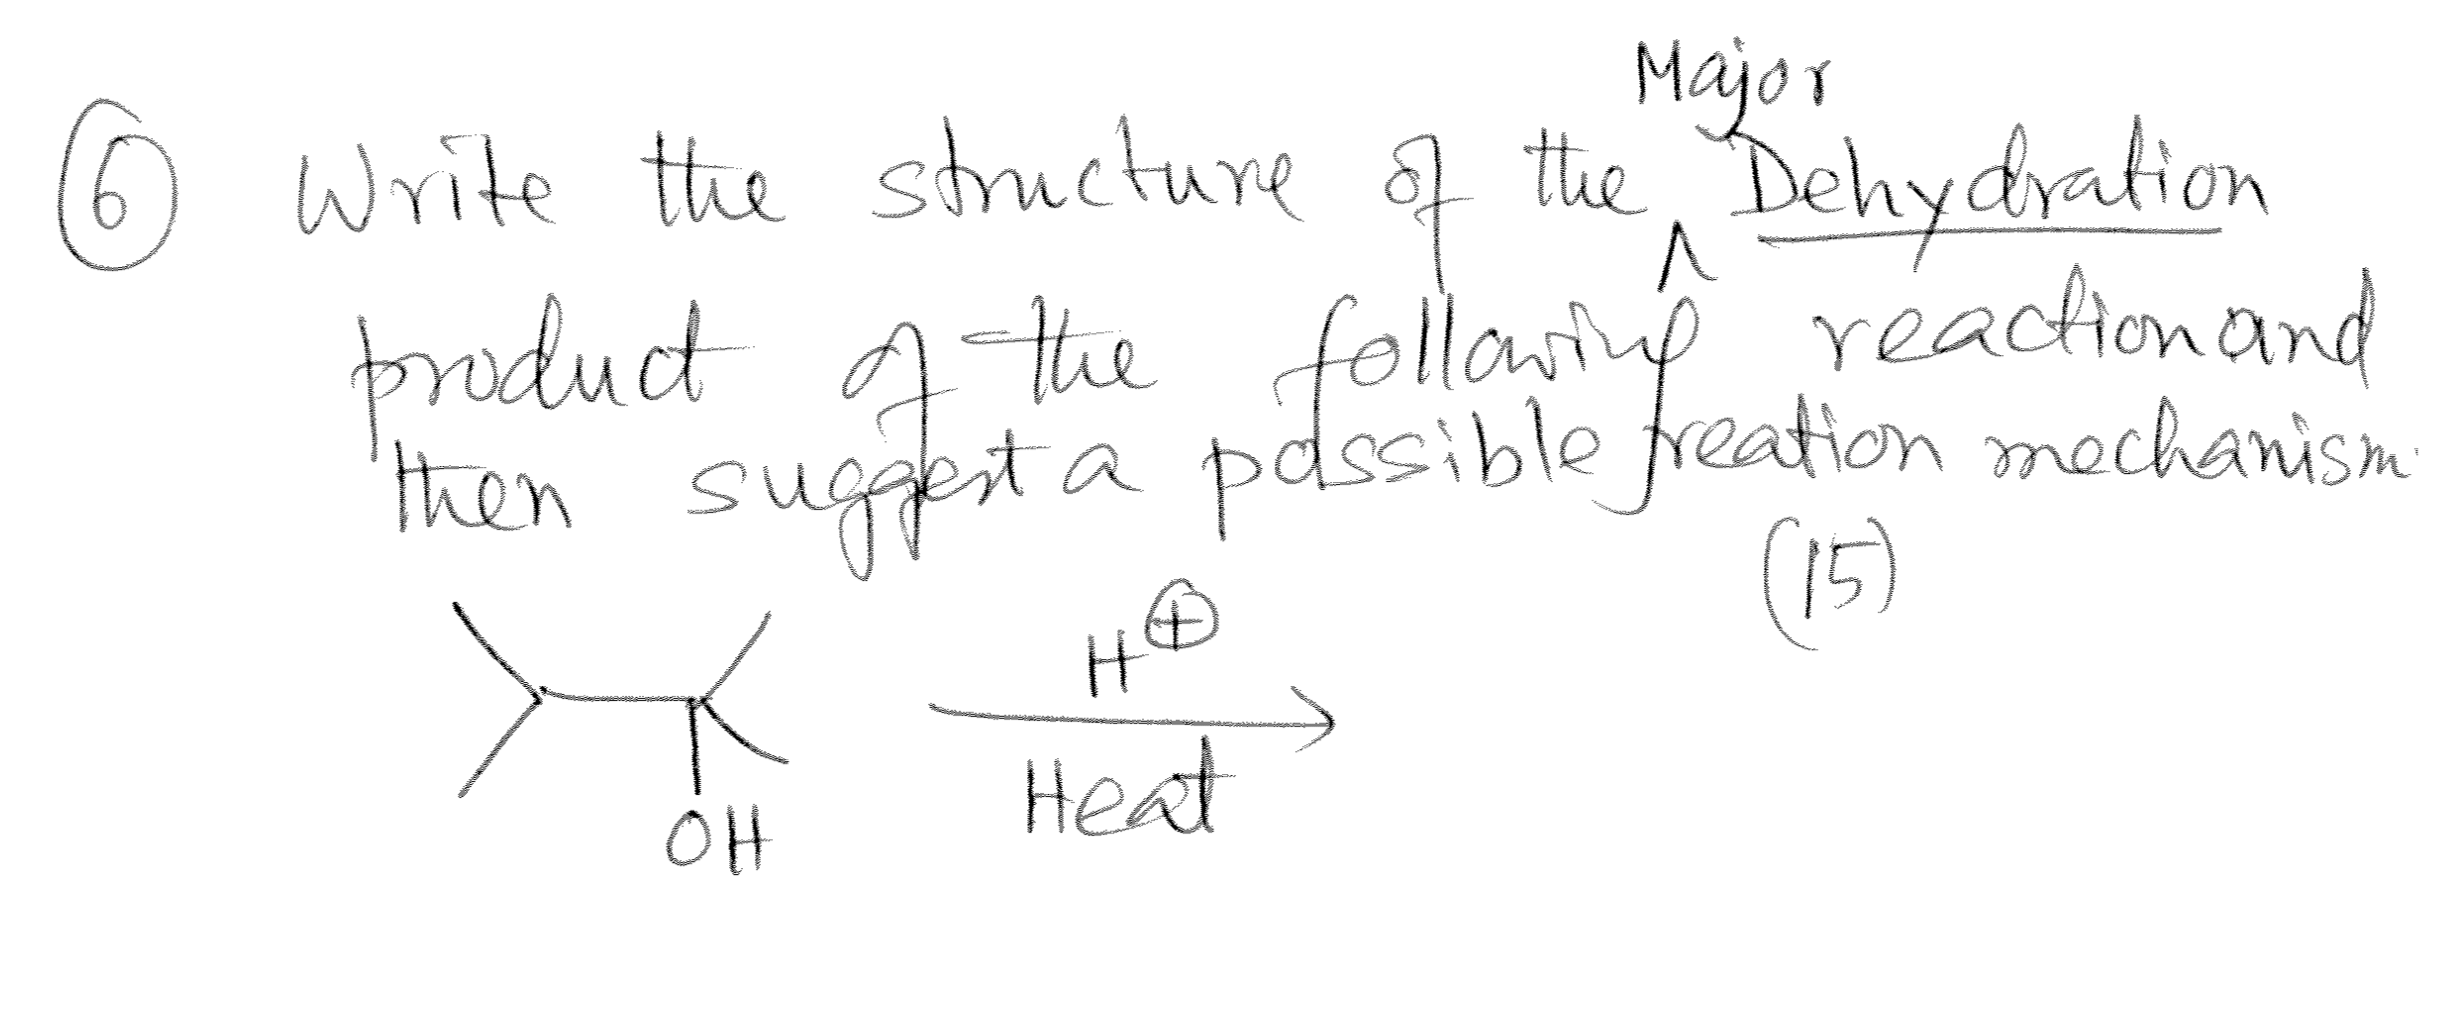 6 Write the structure of the Major Dehydration
product of the following reaction and
then suggest a possible reation mechanism.
(15)
H⊕
Heat
OH